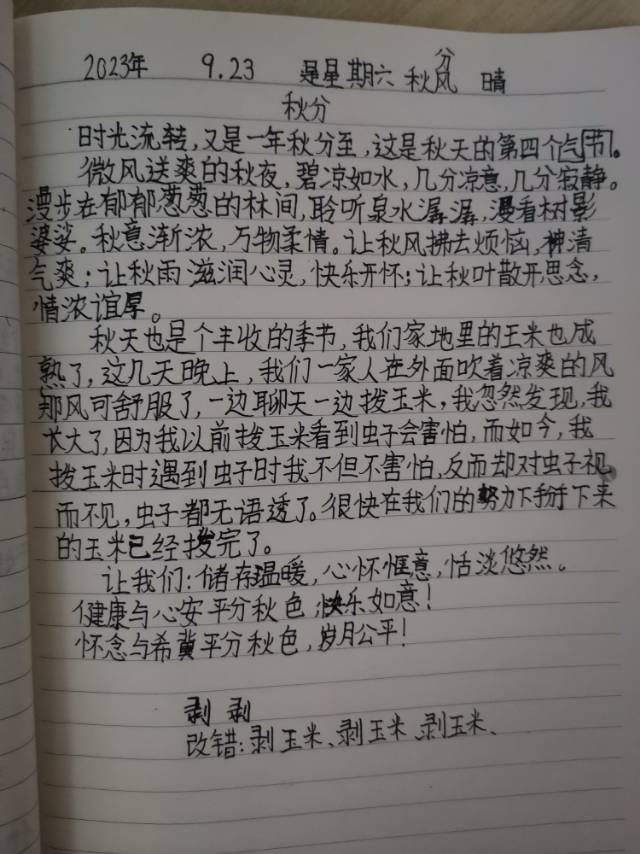 2023年 9.23 是星期六 秋风 分 晴
秋分
时光流转,又是一年秋分至,这是秋天的第四个气节。
微风送爽的秋夜,碧凉如水,几分凉意,几分寂静。
漫步在郁郁葱葱的林间,聆听泉水潺潺,漫看树影
婆娑。秋意渐浓,万物柔情。让秋风拂去烦恼,神清
气爽;让秋雨滋润心灵,快乐开怀;让秋叶散开思念,
情浓谊厚。
秋天也是个丰收的季节,我们家地里的玉米也成
熟了,这几天晚上,我们一家人在外面吹着凉爽的风
那风可舒服了,一边聊天一边拨玉米,我忽然发现,我
长大了,因为我以前拨玉米看到虫子会害怕,而如今,我
拨玉米时遇到虫子时我不但不害怕,反而却对虫子视
而不见,虫子都无语透了。很快在我们的努力下掰下来
的玉米已经拨完了。
让我们:储存温暖,心怀惬意,恬淡悠然。
健康与心安平分秋色,快乐如意!
怀念与希冀平分秋色,岁月公平!
剥 剥
改错:剥玉米、剥玉米、剥玉米、